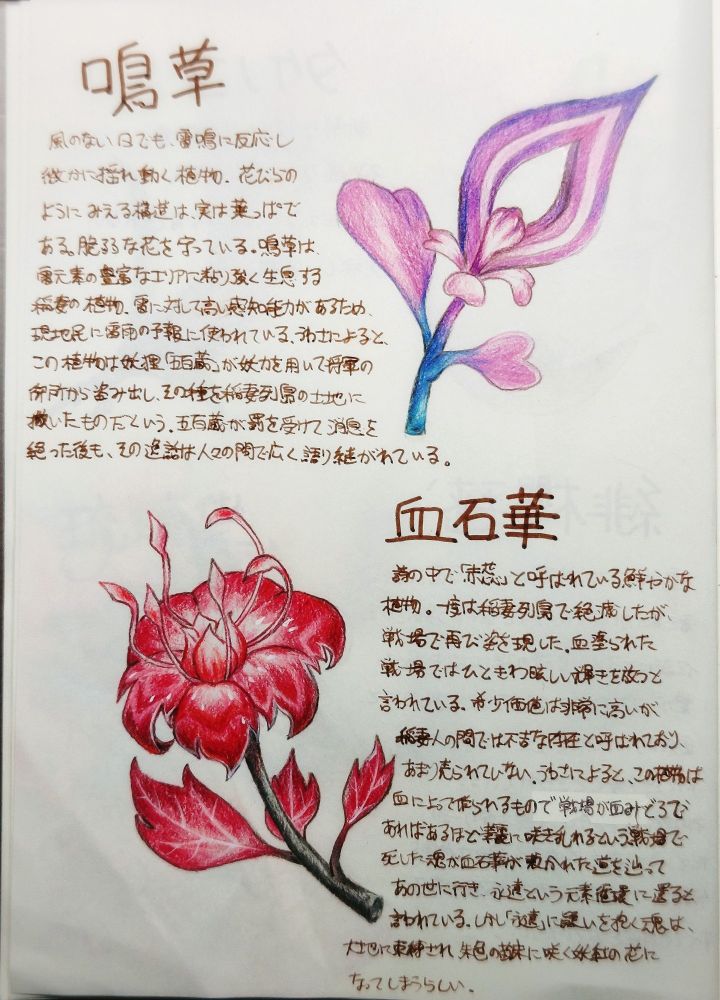 鳴草
風のない日でも、雷鳴に反応し
微かに揺れ動く植物。花びらの
ようにみえる構造は、実は葉っぱで
ある。脆弱な花を守っている。鳴草は、
雷元素の豊富なエリアに粘り強く生息する
稲妻の植物。雷に対して高い感知能力があるため、
現地民に雷雨の予報に使われている。うわさによると、
この植物は妖狸「五百蔵」が妖力を用いて将軍の
御所から盗み出し、その種を稲妻列島の土地に
撒いたものだという。五百蔵が罰を受けて消息を
絶った後も、その逸話は人々の間で広く語り継がれている。
血石華
詩の中で「赤蕊」と呼ばれている鮮やかな
植物。一度は稲妻列島で絶滅したが、
戦場で再び姿を現した。血塗られた
戦場ではひときわ眩しい輝きを放つと
言われている。希少価値は非常に高いが、
稲妻人の間では不吉な存在と呼ばれており、
あまり売られていない。うわさによると、この植物は
血によって作られるもので戦場が血みどろで
あればあるほど華麗に咲き乱れるという戦場で
死した魂が血石華が敷かれた道を辿って
あの世に行き、永遠という元素循環に還ると
言われている。しかし「永遠」に疑いを抱く魂は、
大地に束縛され、朱色の苗床に咲く妖紅の花に
なってしまうらしい。